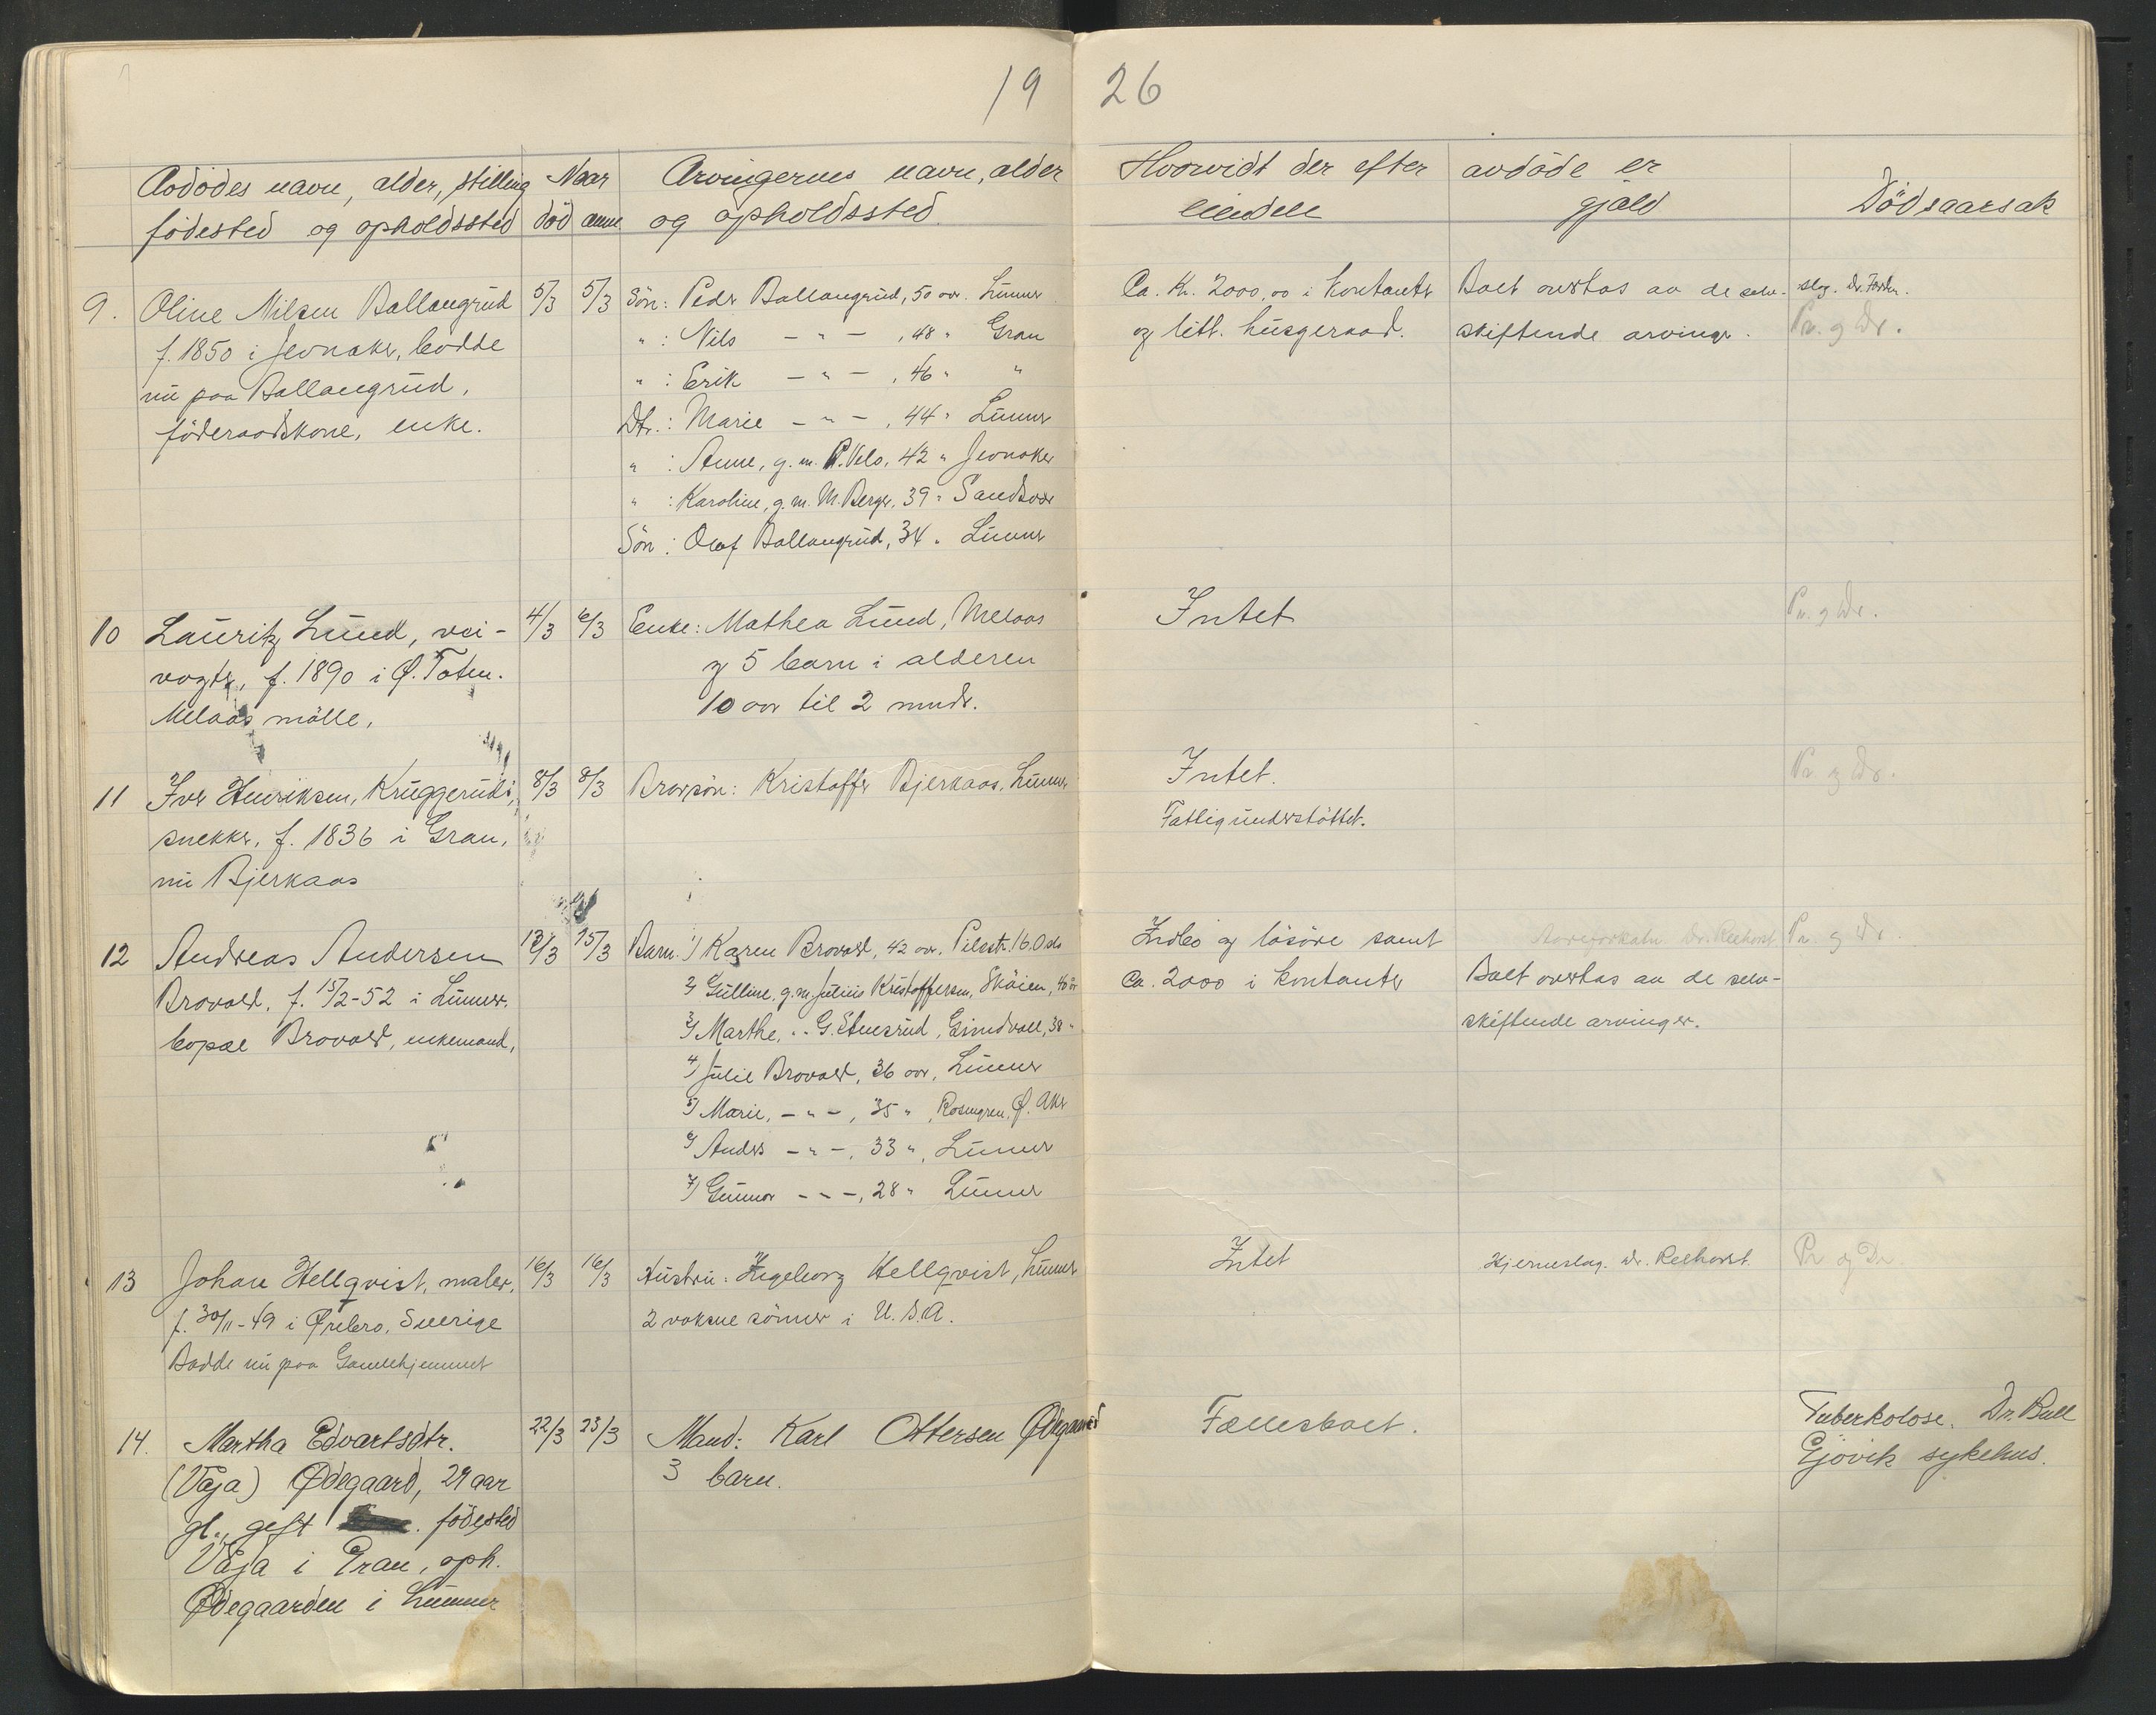 19 26
Avdödes navn, alder, stilling
födested og opholdssted
Naar
död anm.
Arvingernes navn, alder
og opholdssted.
Hvorvidt der efter avdöde er
eiendele
gjæld
Dödsaarsak
9. Oline Nilsen Ballangrud
f. 1850 i Jevnaker, bodde
nu paa Ballangrud,
föderaadskone, enke.
5/3 5/3
Sön: Peder Ballangrud, 50 aar. Lunner
" : Nils — " — , 48 " Gran
" : Erik — " — , 46 " "
Dtr.: Marie — " — , 44 " Lunner
" : Anne, g. m. P. Velo, 42 " Jevnaker
" : Karoline, g. m. M. Berger, 39 " Sandsvær
Sön : Olaf Ballangrud, 34 " Lunner
Ca. Kr. 2000,00 i kontanter
og litt husgeraad.
Boet overtas av de selv-
skiftende arvinger.
slag. Dr.
Pr. og Dr.
10 Lauritz Lund, vei-
vogter, f. 1890 i Ø. Toten.
Melaas mölle,
4/3 6/3
Enke: Mathea Lund, Melaas
og 5 barn i alderen
10 aar til 2 mndr.
Intet
Pr. og Dr.
11 Iver Henriksen, Kruggerudei,
snekker, f. 1836 i Gran,
nu Bjerkaas
8/3 8/3
Brorsön: Kristoffer Bjerkaas, Lunner
Intet.
Fattigunderstöttet.
Pr og Dr.
12 Andreas Andersen
Brovold, f. 15/2-52 i Lunner.
bopæl Brovold, enkemand,
13/3 15/3
Barn. 1/ Karen Brovold, 42 aar. Pilestr. 16. Oslo
2/ Gulline, g. m. Julius Kristoffersen, Skøien, 40 år
3/ Marthe, " " G. Stuesrud, Grindvoll, 38 "
4/ Julie Brovold, 36 aar, Lunner
5/ Marie, — " — , 35 " , Rosengren, Ø. Aker
6/ Anders — " —, 33 ", Lunner
7/ Gunnar — " —, 28 " Lunner
Indbo og lösöre samt
Ca. 2000 i kontanter
Aareforkalkn. Dr. Reehorst
Pr. og Dr
Boet overtas av de selv-
skiftende arvinger.
13 Johan Hellqvist, maler,
f. 30/11-49 i Ørebro, Sverige
Bodde nu paa Gamlehjemmet
16/3 16/3
Hustru: Ingeborg Hellqvist, Lunner
2 voksne sönner i U.S.A.
Intet
Hjerneslag. Dr. Reehorst
Pr og Dr
14. Martha Edvartsdtr.
(Vøja) Ødegaard, 29 aar
gl., gift . födested
Vøja i Gran, oph.
Ødegaarden i Lunner
22/3 23/3
Mand: Karl Ottersen Ødegaard
3 barn.
Fællesboet.
Tuberkolose. Dr. Bull
Gjövik sykehus.